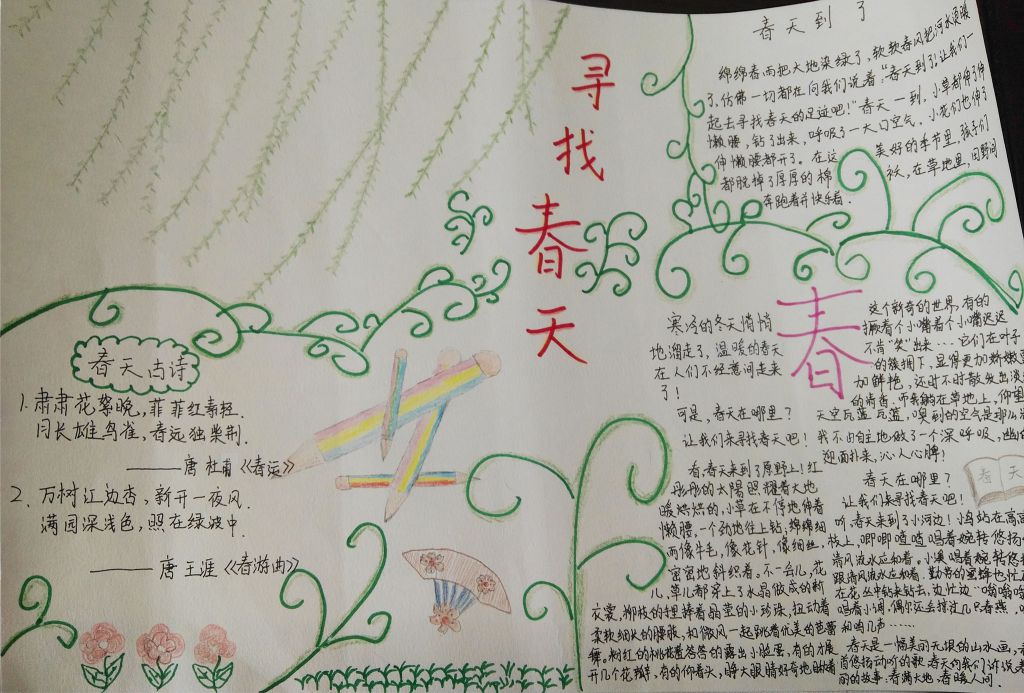 寻找春天
春天到了
绵绵春雨把大地染绿了,软软春风把河水顶暖
了,仿佛一切都在向我们说着:“春天到了!让我们一
起去寻找春天的足迹吧!”春天一到,小草都伸了伸
懒腰,钻了出来,呼吸了一大口空气,小花们也伸了
伸懒腰都开了。在这美好的季节里,孩子们
都脱掉了厚厚的棉袄,在草地里,田野间
奔跑着并快乐着.
春天古诗
1.肃肃花絮晚,菲菲红素轻.
日长雄鸟雀,春远独柴荆.
——唐 杜甫《春远》
2.万树江边杏,新开一夜风.
满园深浅色,照在绿波中.
——唐 王涯《春游曲》
春
寒冷的冬天悄悄
地溜走了,温暖的春天
在人们不经意间走来
了!
可是,春天在哪里?
让我们来寻找春天吧!
看,春天来到了原野上!红
彤彤的太阳照耀着大地
暖烘烘的,小草在不停地伸着
懒腰,一个劲地往上钻;绵绵细
雨像牛毛,像花针,像细丝,
密密地斜织着。不一会儿,花
儿、草儿都穿上了水晶做成的新
衣裳,柳枝的捏捧着晶莹的小珍珠,扭动着
柔软细长的腰肢,和微风一起跳着优美的芭蕾
舞。粉红的桃花羞答答的露出小脸蛋,有的才展
开几个花瓣,有的仰着头,睁大眼睛好奇地
这个新奇的世界,有的
撅着个小嘴着个小嘴迟迟
不肯“笑”出来……它们在叶子
的簇拥下,显得更加娇嫩
加鲜艳,还时不时散发出淡
的清香。而我躺在草地上,仰望
天空瓦蓝瓦蓝,嗅到的空气是那么
我不由自主地做了一个深呼吸,幽
迎面扑来,沁人心脾!
春天在哪里?
让我们来寻找春天吧!
听,春天来到了小河边!小鸟站在高高
枝上,唧唧喳喳唱着婉转悠扬
清风流水应和着。小溪唱着婉转悠扬
跟清风流水应和着。勤劳的蜜蜂也忙
在花丛中钻来钻去,边忙边“嗡嗡嗡
唱着小调,偶尔还会掠过几只春燕,
和鸣几声……
春天是一幅美丽无垠的山水画,
首悠扬动听的歌.春天向我们诉说着
丽的故事:春满大地,春暖人间.
春天